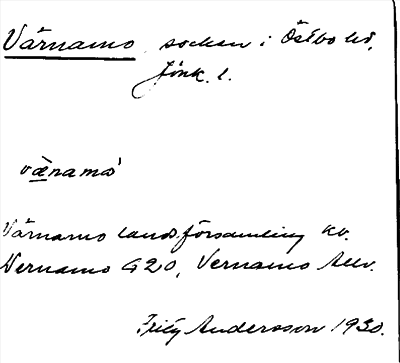 Värnamo socken i Östbo hd,
Jönk. l.
væ̀namó
Värnamo landsförsamling kv.
Wernamo G20, Vernamo Allv.
Fritz Andersson 1930.